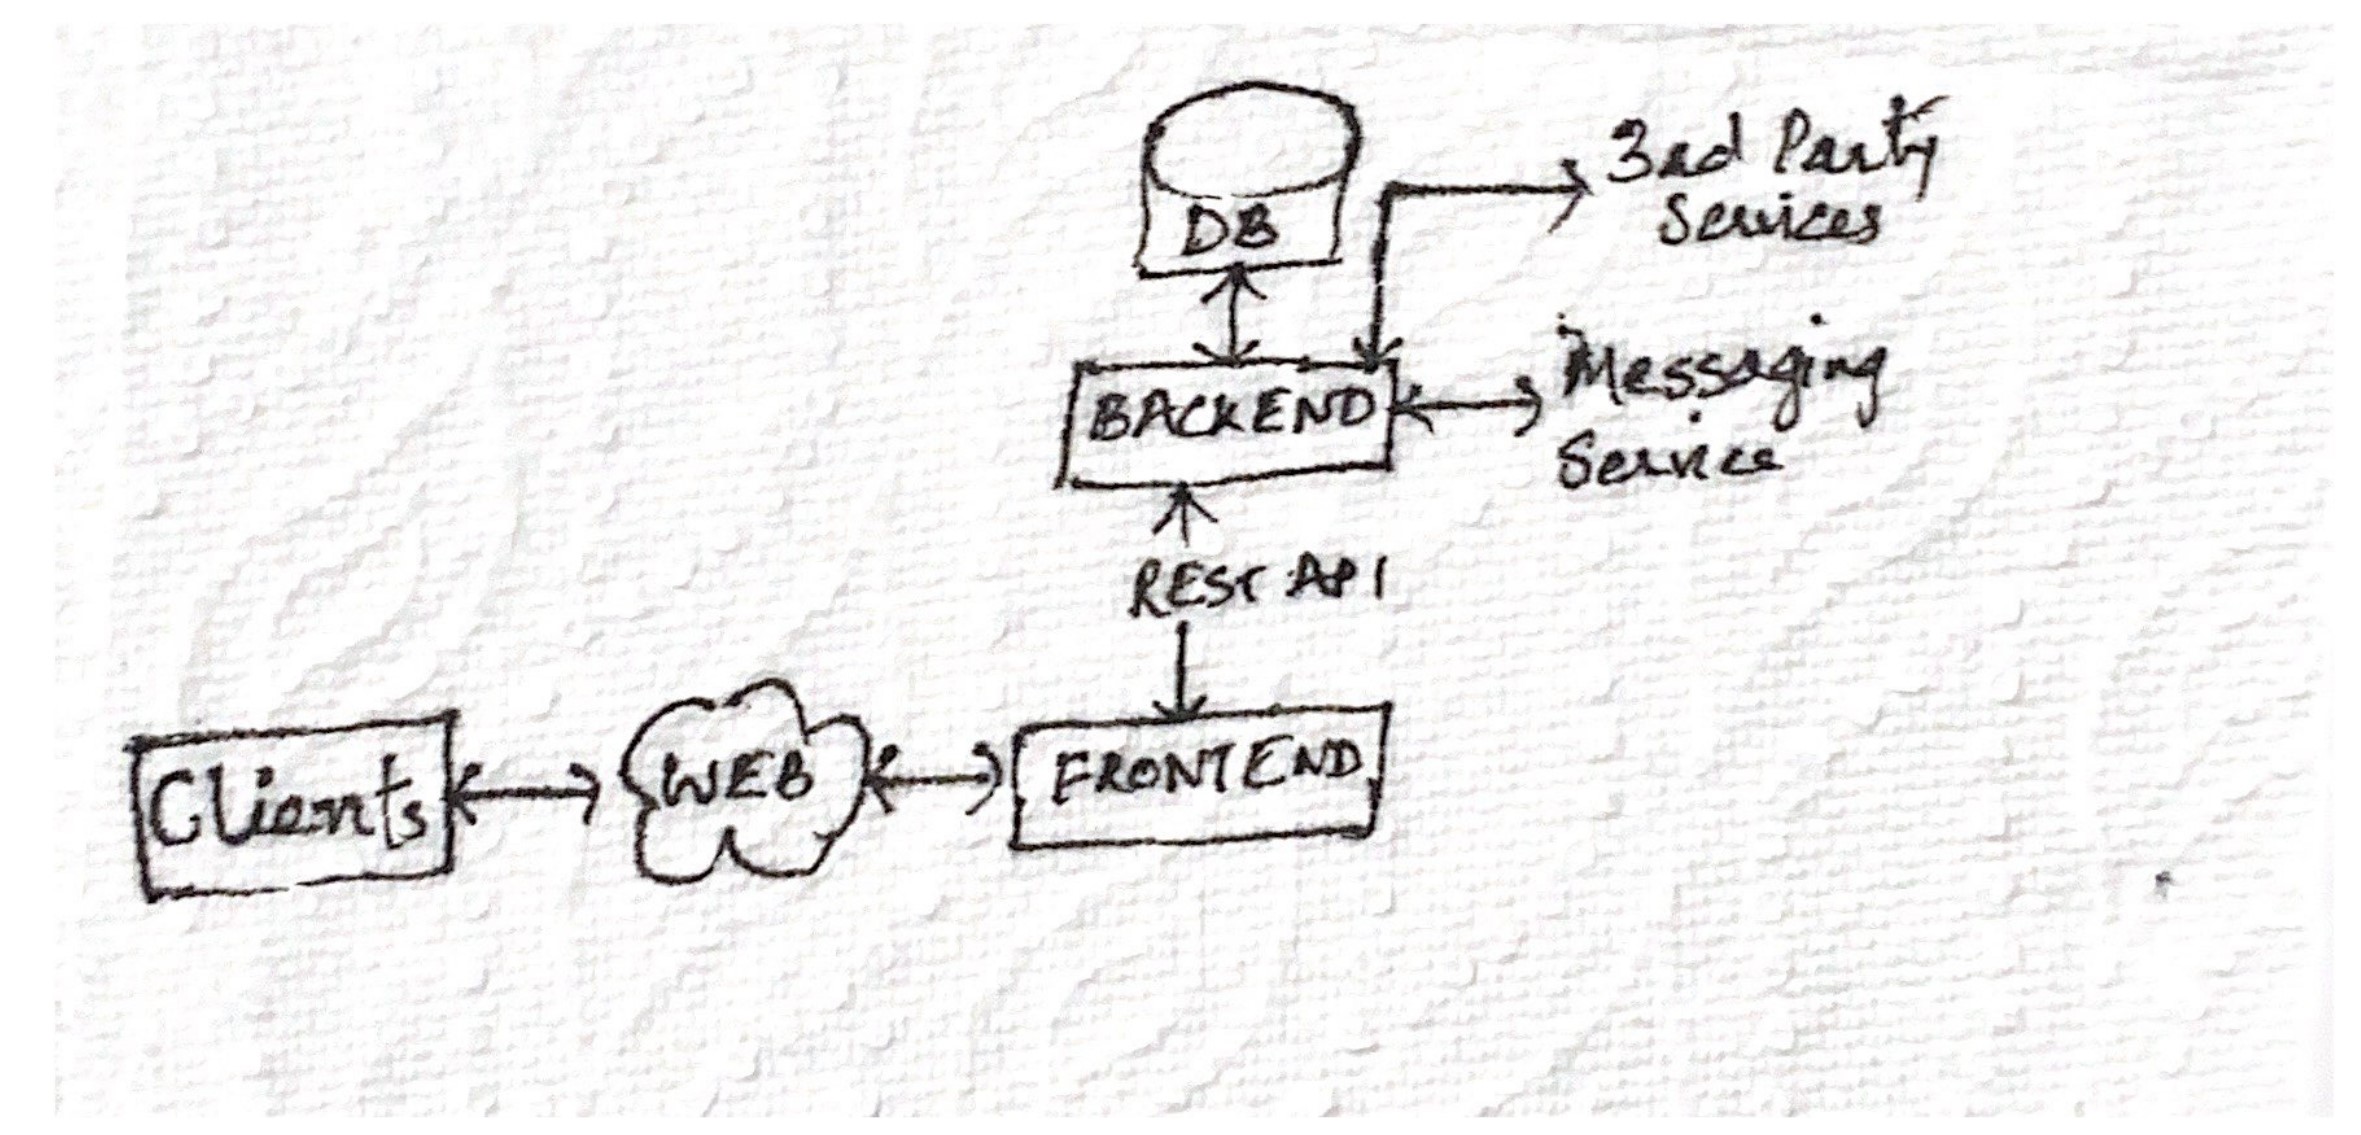 DB
3rd Party
Services
BACKEND
Messaging
Service
REST API
Clients
WEB
FRONTEND